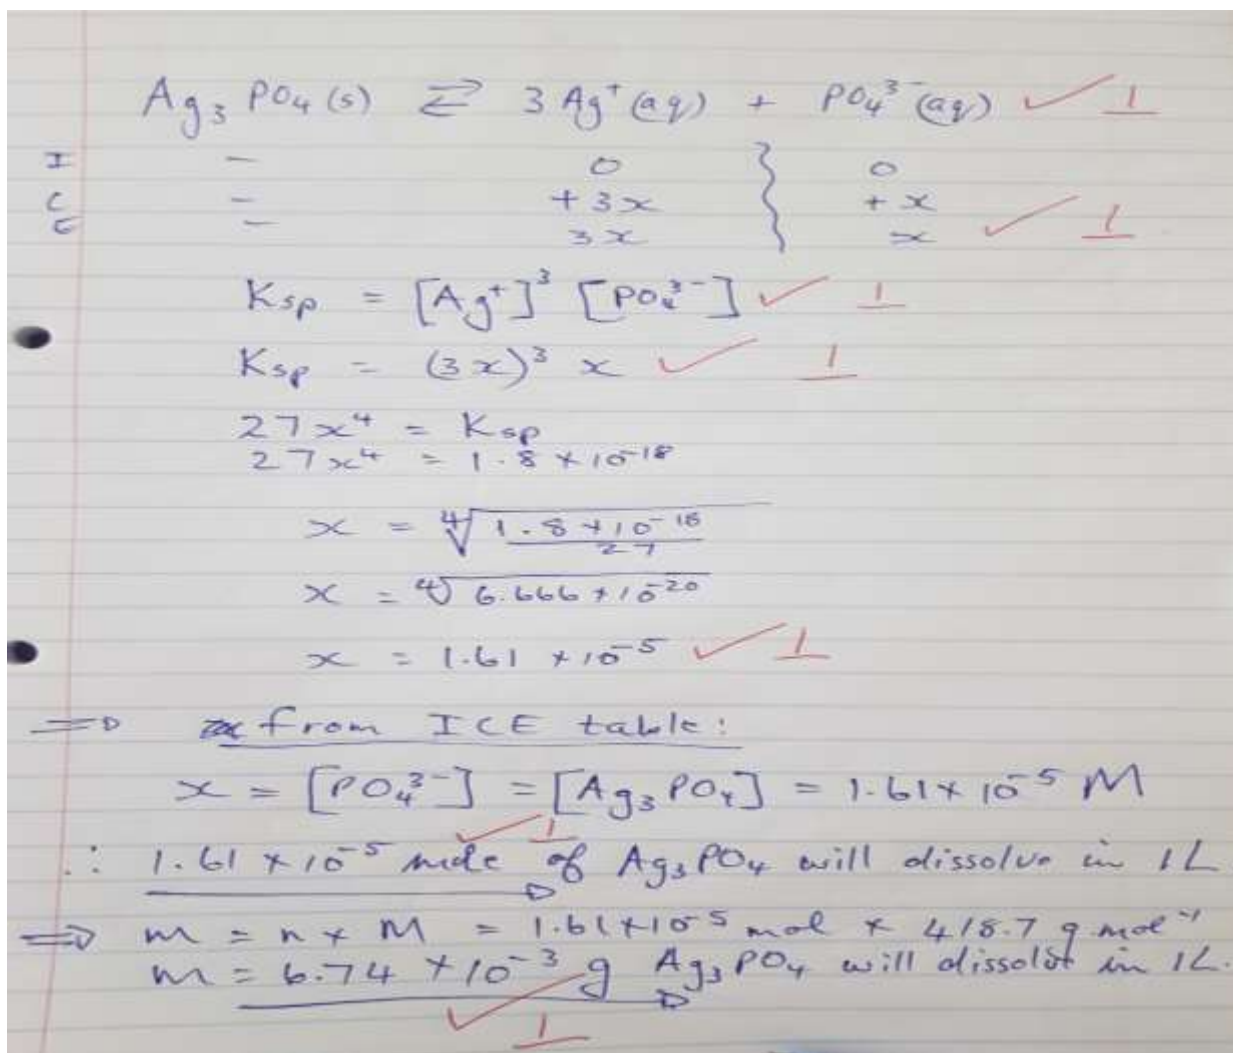 Ag₃PO₄(s) ⇄ 3Ag⁺(aq) + PO₄³⁻(aq) ✓ 1
I – 0 } 0
C – +3x } +x
E – 3x } x ✓ 1
Ksp = [Ag⁺]³ [PO₄³⁻] ✓ 1
Ksp = (3x)³ x ✓ 1
27x⁴ = Ksp
27x⁴ = 1.8 × 10⁻¹⁸
x = ∜(1.8 × 10⁻¹⁸ / 27)
x = ∜(6.666 × 10⁻²⁰)
x = 1.61 × 10⁻⁵ ✓ 1
⇒ from ICE table:
x = [PO₄³⁻] = [Ag₃PO₄] = 1.61 × 10⁻⁵ M
✓ 1
∴ 1.61 × 10⁻⁵ mole of Ag₃PO₄ will dissolve in 1L
⇒ m = n × M = 1.61 × 10⁻⁵ mol × 418.7 g.mol⁻¹
m = 6.74 × 10⁻³ g Ag₃PO₄ will in 1L.
✓ 1